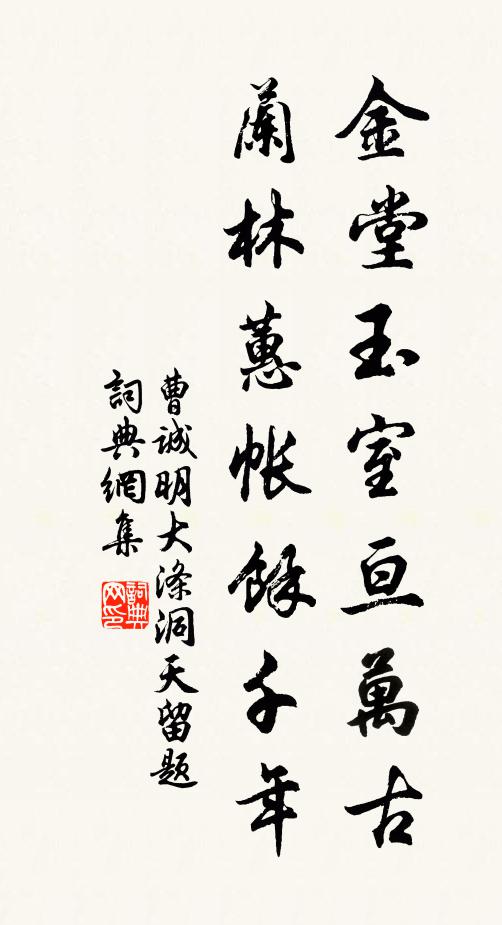 金堂玉室亘萬古
蘭林蕙帳餘千年
曹誠明大滌洞天留題
詞典網集
詞典
网印